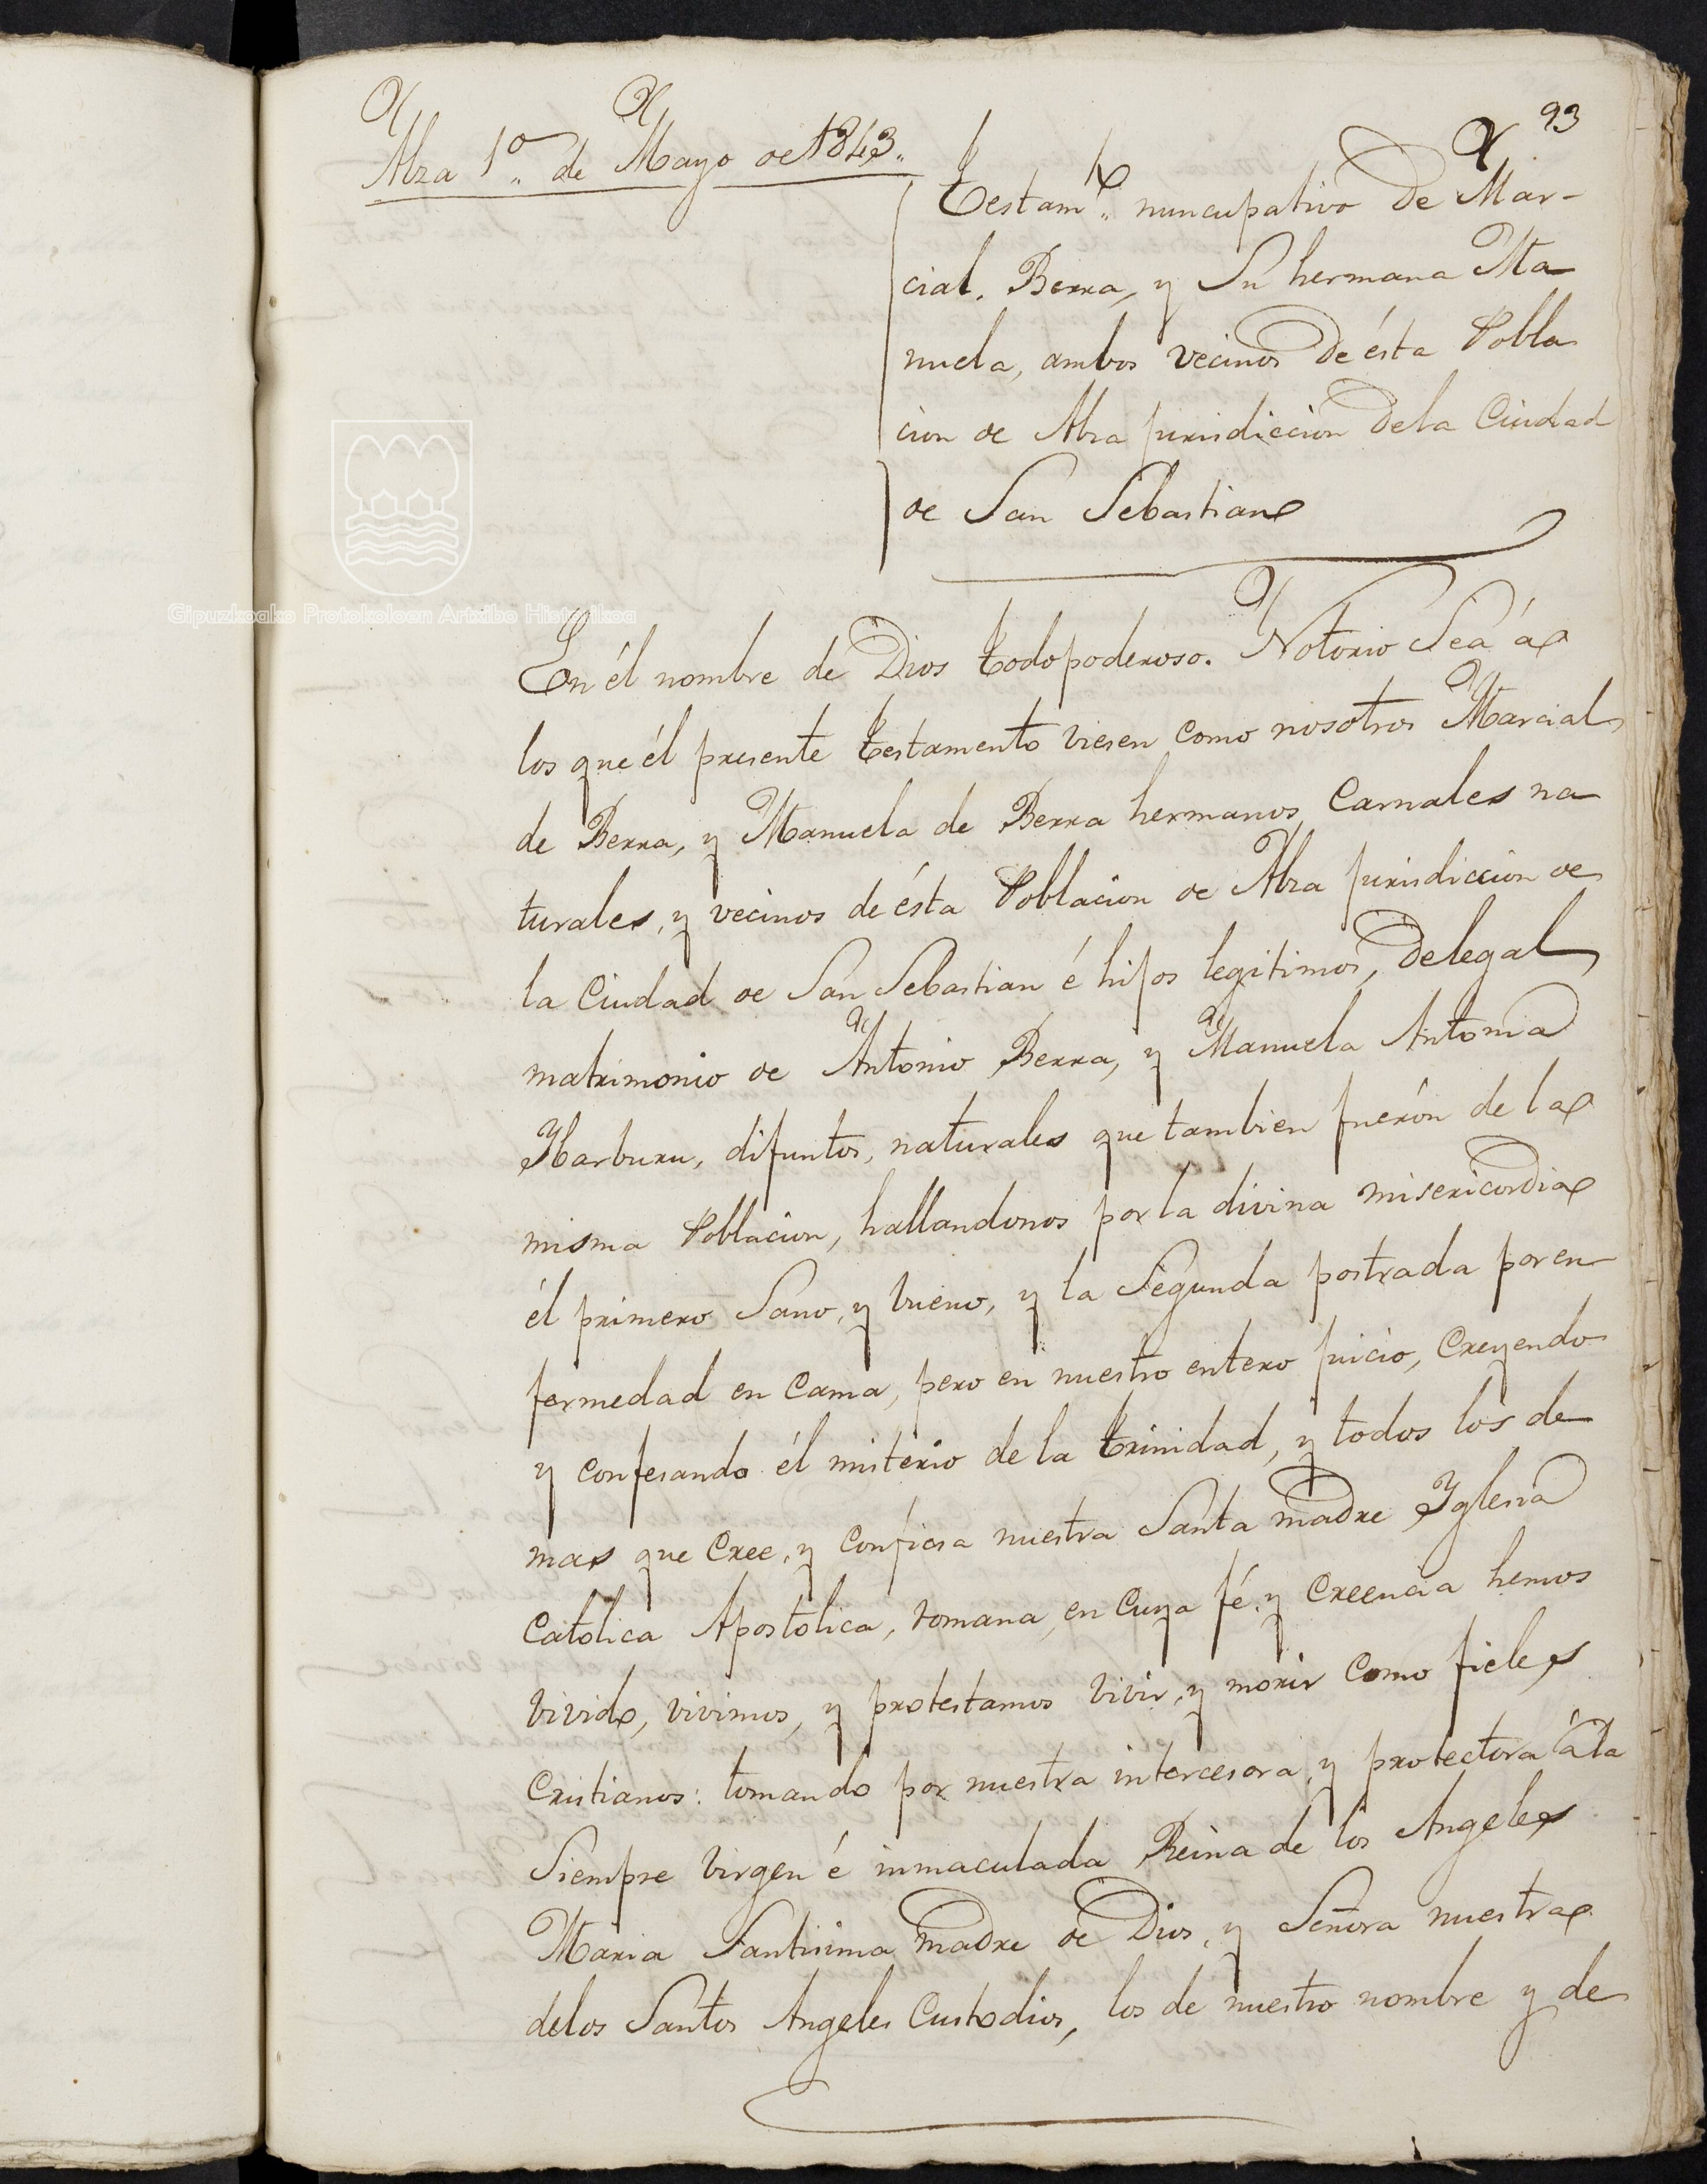 93
Alza 1º de Mayo de 1843.
Testamto. nuncupativo de Mar-
cial Berra, y Su hermana Ma
nuela, ambos vecinos de ésta Pobla
cion de Alza jurisdiccion dela Ciudad
de San Sebastian
Gipuzkoako Protokoloen Artxibo Historikoa
En él nombre de Dios todopoderoso. Notorio Sea á
los que él presente testamento viesen como nosotros Marcial
de Berra, y Manuela de Berra hermanos Carnales na
turales, y vecinos de ésta Poblacion de Alza jurisdiccion de
la Ciudad de San Sebastian é hijos legitimos, de legal
matrimonio de Antonio Berra, y Manuela Antonia
Ybarburu, difuntos, naturales que tambien fuerón de la
misma Poblacion, hallandonos por la divina misericordia
él primero Sano, y bueno, y la Segunda postrada por en
fermedad en Cama, pero en nuestro entero juicio, Creyendo
y confesando él misterio de la trinidad, y todos los de
mas que Cree, y Confiesa nuestra Santa madre Yglesia
Católica Apostólica, romana, en Cuya fé, y Creencia hemos
vivido, vivimos, y protestamos vivir, y morir Como fieles
Cristianos: tomando por nuestra intercesora, y protectora á la
Siempre Virgen é inmaculada Reina de los Angeles
Maria Santisima madre de Dios, y Señora nuestra
delos Santos Angeles Custodios, los de nuestro nombre y de